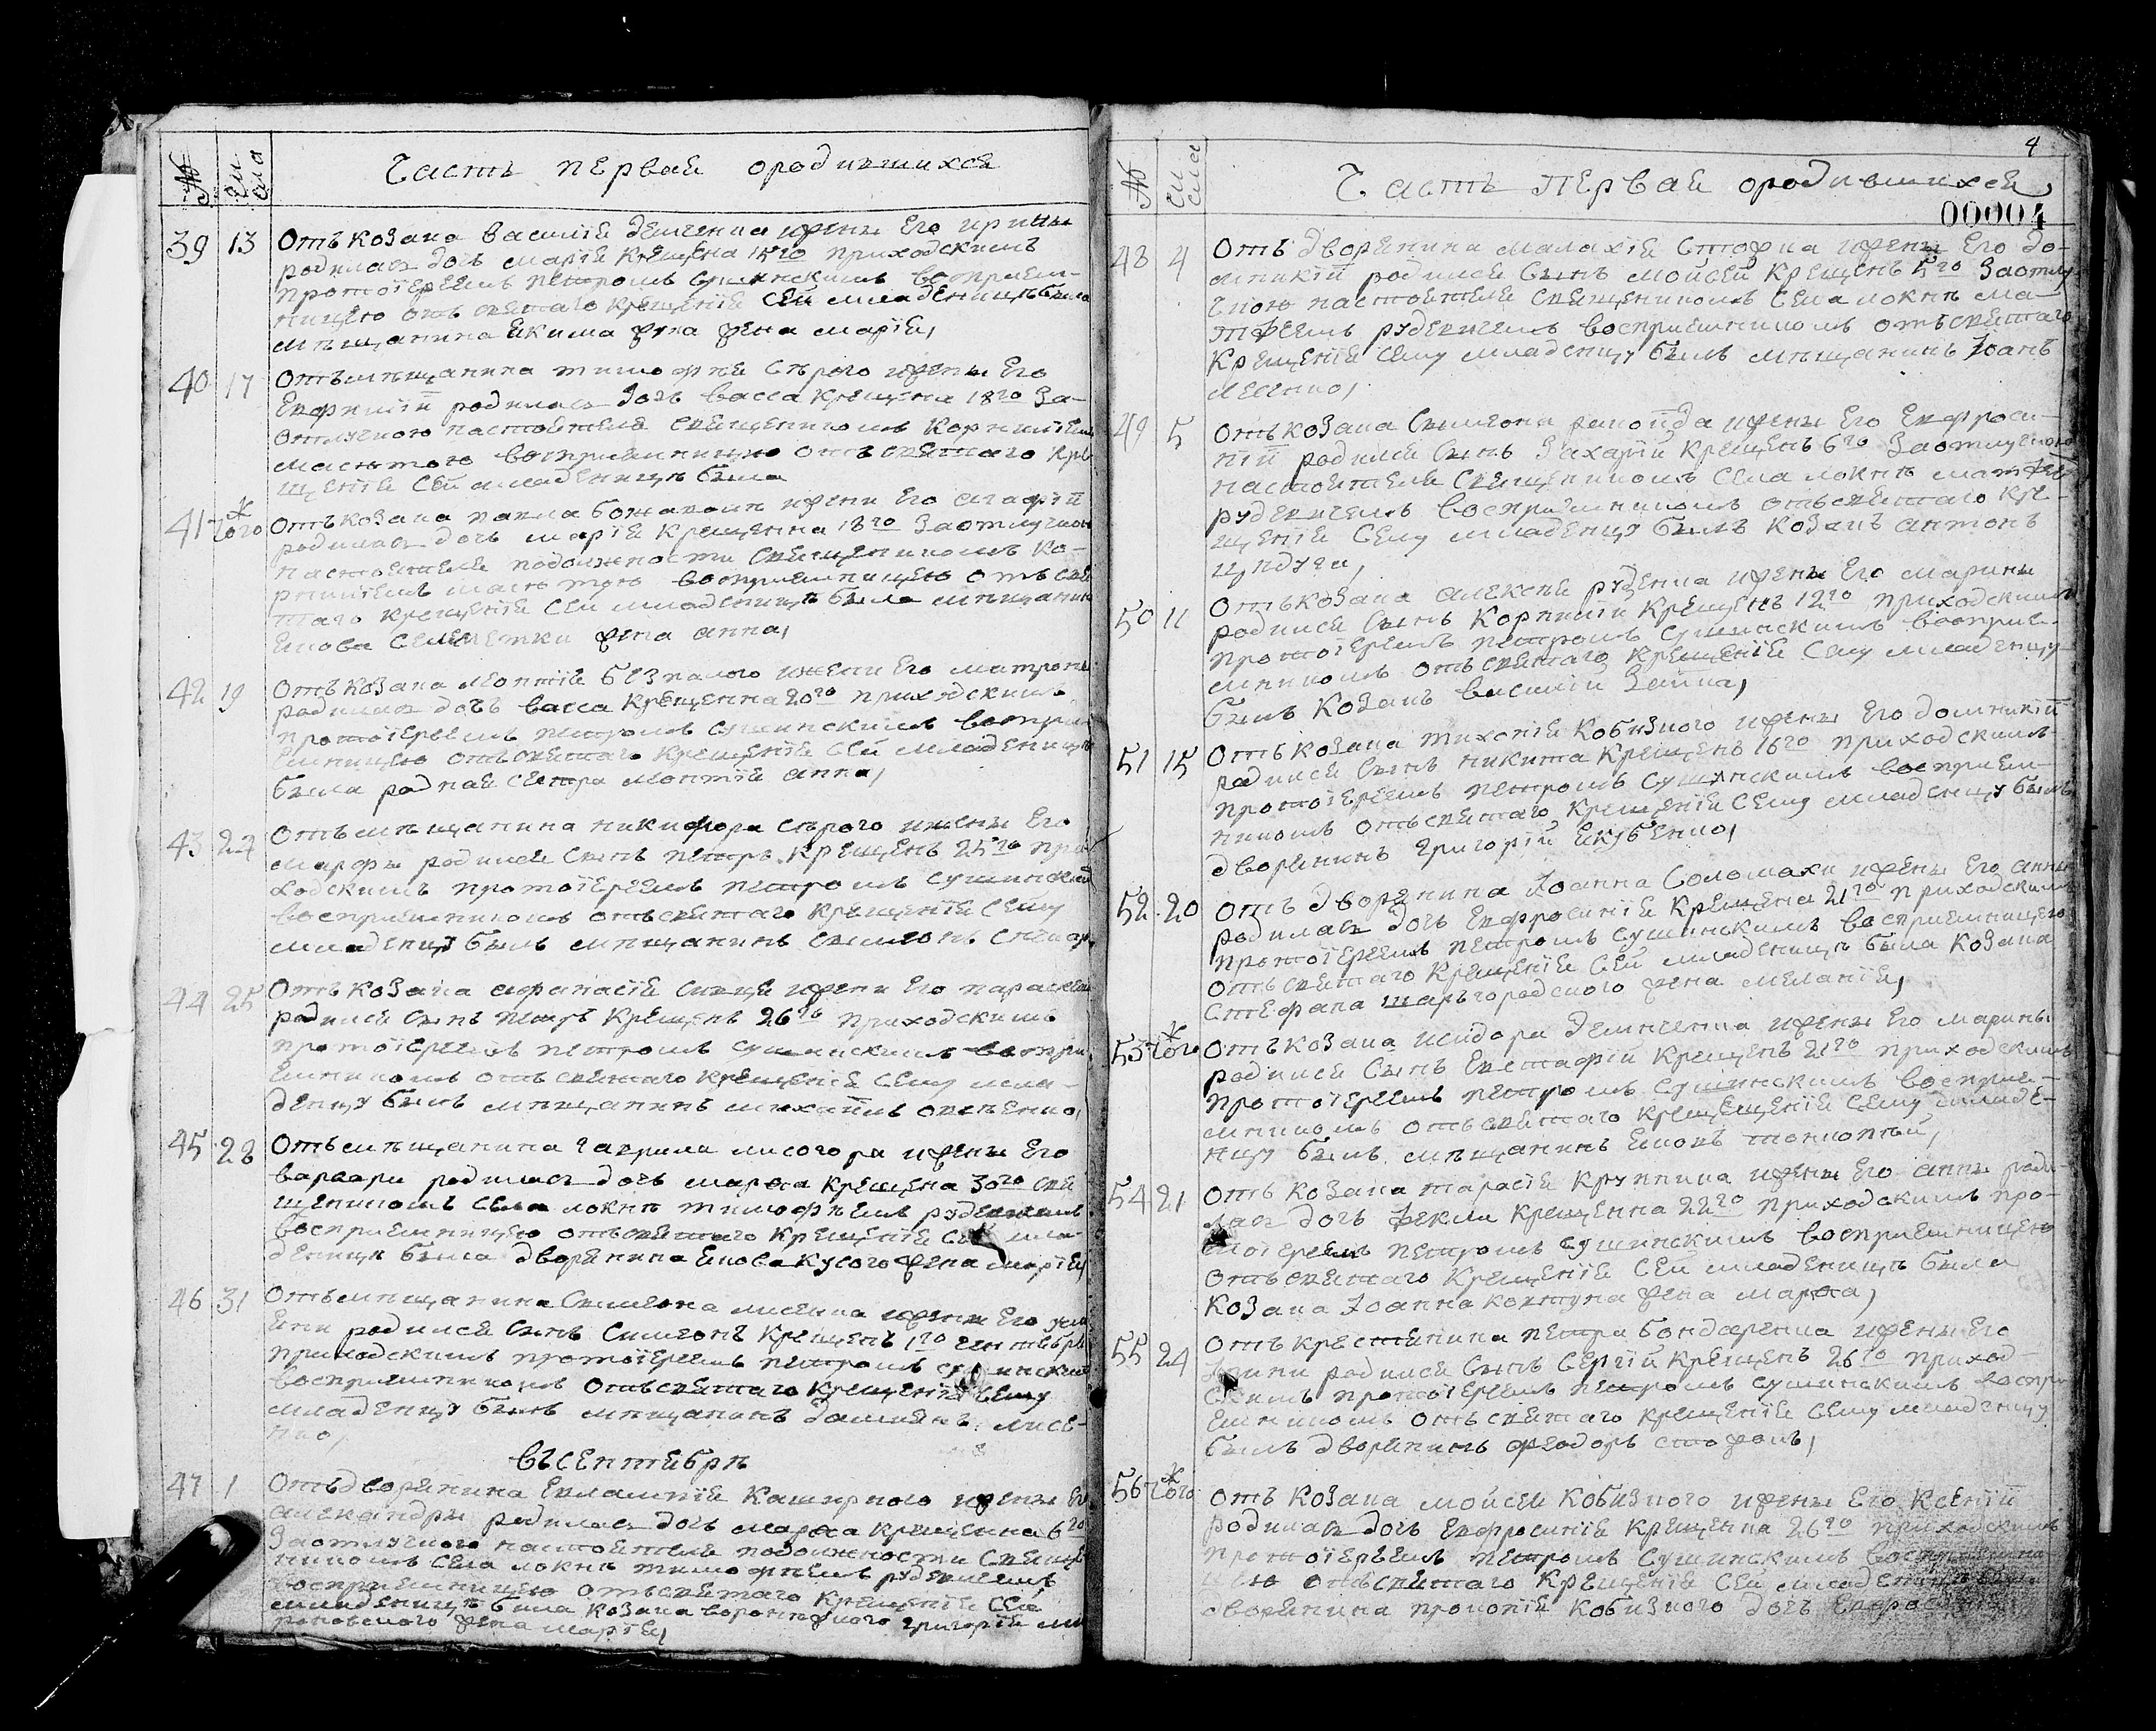 № Чи сла Часть первая ородившихся
39 13 Отъ козака василія демченка ижены Его ирины
родилась дочь марія крещена 14го приходскимъ
протоіереемъ петромъ сушинскимъ восприем-
ницею отъ святаго крещенія сей младеницѣ была
мѣщанина якима жука жена марія,
40 17 Отъ мѣщанина тимофея сѣрого ижены Его
Евфиміи родилась дочь васса крещена 18го За-
отлучкою настоятеля священникомъ корниліемъ
восприемницею отъ святаго кре
щенія сей младеницѣ была
41 тогож Отъ козака павла ижени Его агафіи
родилась дочь марія крещенна 18го Заотлучкою
настоятеля подолжности священникомъ ко-
рниліемъ восприемницею отъ свя
таго крещенія сей младеницѣ была мѣщанина
жена анна,
42 19 Отъ козака леонтія безпалого ижени Его матроны
родилась дочь васса крещенна 20го приходскимъ
протоіереемъ петромъ сушинскимъ воспри
емницею отъ святаго крещенія сей младеницѣ
была родная сестра леонтія анна,
43 24 Отъ мѣщанина никифора сѣрого ижены Его
марфы родился сынъ петръ крещенъ 25го при
ходскимъ протоіереемъ петромъ сушинским
восприемникомъ отъ святаго крещенія сему
младенцу былъ мѣщанинъ симеонъ
44 25 Отъ козака афанасія ижени Его параскевы
родился сынъ петръ крещенъ 26го приходскимъ
протоіереемъ петромъ сушинскимъ воспри
емникомъ отъ святаго крещенія сему мла-
денцу былъ мѣщанинъ михаилъ
45 28 Отъ мѣщанина гаврила лисогора ижены Его
варвари родилась дочь марфа крещена 30го свя
щеникомъ села локнѣ тимофѣемъ рудевичемъ
восприемницею отъ святаго крещенія сей мла
деницѣ была дворянина якова кусого жена марія,
46 31 Отъ мѣщанина симеона лисенка ижены Его
родился сынъ симеонъ крещенъ 1го сентября
приходскимъ протоіереемъ петромъ сушинским
восприемникомъ отъ святаго крещенія сему
младенцу былъ мѣщанинъ дамиянъ лисе-
нко,
въсентябрѣ
47 1 Отъ дворянина Евлампія каширного ижены Его
александры родилась дочь марфа крещенна 6го
Заотлучкою настоятеля подолжности священ
никомъ села локнѣ тимофѣемъ рудевичемъ
восприемницею отъ святаго крещенія сей
младеницѣ была козака григорія
жена марія,
4
00004
№ Чи сла Часть первая ородившихся
48 4 Отъ дворянина малахія стофіа ижены Его до-
мникіи родился сынъ мойсей крещенъ 5го Заотлу
чкою настоятеля священникомъ села локнѣ ма-
тфеемъ рудевичемъ восприемникомъ отъ святаго
крещенія сему младенцу былъ мѣщанинъ Іоанъ
49 5 Отъ козака симеона ижены Его Евфроси-
ніи родился сынъ Захарій крещенъ 6го Заотлучкою
настоятеля священникомъ села локнѣ матфеем
рудевичемъ восприемникомъ отъ святаго кре-
щенія сему младенцу былъ козакъ антонъ
50 11 Отъ козака алексѣя руденка ижены Его марины
родился сынъ корнилій крещенъ 12го приходскимъ
протоіереемъ петромъ сушинскимъ восприе-
мникомъ отъ святаго крещенія сему младенцу
былъ козакъ василій Заика,
51 15 Отъ козака кобизного ижены Его домникіи
родился сынъ никита крещенъ 16го приходскимъ
протоіереемъ петромъ сушинскимъ восприем-
никомъ отъ святаго крещенія сему младенцу былъ
дворянинъ григорій якубенко,
52 20 Отъ дворянина Іоанна соломахи ижены Его анны
родилась дочь Евфросинія крещена 21го приходскимъ
протоіереемъ петромъ сушинскимъ восприемницею
отъ святаго крещенія сей младеницѣ была козака
стефана шаръгородского жена меланія,
53 тогож Отъ козака исидора демченка ижены Его марины
родился сынъ Евстафій крещенъ 21го приходскимъ
протоіереемъ петромъ сушинскимъ восприе-
мникомъ отъ святаго крещещенія сему младе-
нцу былъ мѣщанинъ яковъ
54 21 Отъ козака тарасія крупника ижены Его анны роди-
лась дочь Фекла крещенна 22го приходскимъ про-
тоіереемъ петромъ сушинскимъ восприемницею
отъ святаго крещенія сей младеницѣ была
козака Іоанна ковтуна жена марфа,
55 24 Отъ крестянина петра бондаренка ижены Его
родился сынъ сергій крещенъ 26го приход-
скимъ протоіереемъ петромъ сушинскимъ воспри
емникомъ отъ святаго крещенія сему младенцу
былъ дворянинъ феодоръ
56 тогож Отъ козака мойсея кобизного ижены Его ксеніи
родилась дочь Евфросинія крещенна 26го приходскимъ
протоіереемъ петромъ сушинскимъ восприемни
цею отъ святаго крещенія сей младеницѣ была
дворянина прокопія кобизного дочь Евфросинія